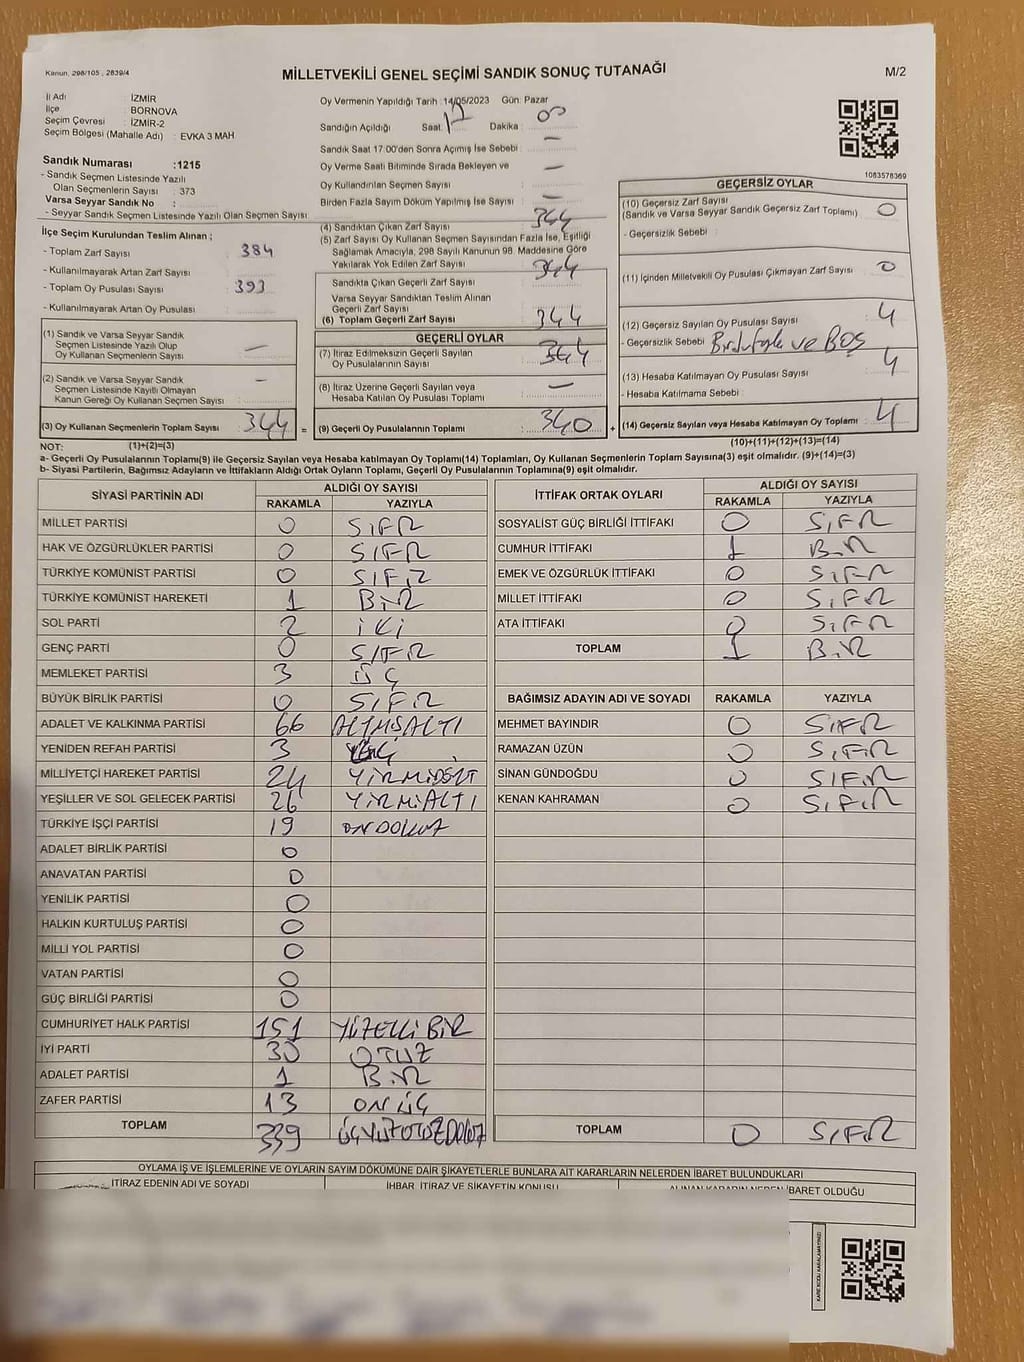 Kanun, 298/105 , 2839/4
MİLLETVEKİLİ GENEL SEÇİMİ SANDIK SONUÇ TUTANAĞI
M/2
İl Adı : İZMİR
İlçe : BORNOVA
Seçim Çevresi : İZMİR-2
Seçim Bölgesi (Mahalle Adı) : EVKA 3 MAH
Sandık Numarası :1215
- Sandık Seçmen Listesinde Yazılı
Olan Seçmenlerin Sayısı : 373
Varsa Seyyar Sandık No :
- Seyyar Sandık Seçmen Listesinde Yazılı Olan Seçmen Sayısı
Oy Vermenin Yapıldığı Tarih :14/05/2023 Gün: Pazar
Sandığın Açıldığı Saat 17 Dakika : 00
Sandık Saat 17.00'den Sonra Açılmış İse Sebebi : —
Oy Verme Saati Bitiminde Sırada Bekleyen ve —
Oy Kullandırılan Seçmen Sayısı
Birden Fazla Sayım Döküm Yapılmış İse Sayısı : —
1083578369
İlçe Seçim Kurulundan Teslim Alınan ;
- Toplam Zarf Sayısı : 384
- Kullanılmayarak Artan Zarf Sayısı
- Toplam Oy Pusulası Sayısı : 393
- Kullanılmayarak Artan Oy Pusulası
(1) Sandık ve Varsa Seyyar Sandık
Seçmen Listesinde Yazılı Olup
Oy Kullanan Seçmenlerin Sayısı —
(2) Sandık ve Varsa Seyyar Sandık
Seçmen Listesinde Kayıtlı Olmayan
Kanun Gereği Oy Kullanan Seçmen Sayısı : —
(3) Oy Kullanan Seçmenlerin Toplam Sayısı : 344 =
(4) Sandıktan Çıkan Zarf Sayısı : 344
(5) Zarf Sayısı Oy Kullanan Seçmen Sayısından Fazla İse, Eşitliği
Sağlamak Amacıyla, 298 Sayılı Kanunun 98. Maddesine Göre
Yakılarak Yok Edilen Zarf Sayısı
344
Sandıkta Çıkan Geçerli Zarf Sayısı
Varsa Seyyar Sandıktan Teslim Alınan
Geçerli Zarf Sayısı
(6) Toplam Geçerli Zarf Sayısı : 344
GEÇERLİ OYLAR
(7) İtiraz Edilmeksizin Geçerli Sayılan
Oy Pusulalarının Sayısı 344
(8) İtiraz Üzerine Geçerli Sayılan veya
Hesaba Katılan Oy Pusulası Toplamı : —
(9) Geçerli Oy Pusulalarının Toplamı : 340 +
GEÇERSİZ OYLAR
(10) Geçersiz Zarf Sayısı
(Sandık ve Varsa Seyyar Sandık Geçersiz Zarf Toplamı) 0
- Geçersizlik Sebebi :
(11) İçinden Milletvekili Oy Pusulası Çıkmayan Zarf Sayısı 0
(12) Geçersiz Sayılan Oy Pusulası Sayısı : 4
- Geçersizlik Sebebi ve BOŞ
(13) Hesaba Katılmayan Oy Pusulası Sayısı : 4
- Hesaba Katılmama Sebebi :
(14) Geçersiz Sayılan veya Hesaba Katılmayan Oy Toplamı : 4
NOT: (1)+(2)=(3) (10)+(11)+(12)+(13)=(14)
a- Geçerli Oy Pusulalarının Toplamı(9) ile Geçersiz Sayılan veya Hesaba katılmayan Oy Toplamı(14) Toplamları, Oy Kullanan Seçmenlerin Toplam Sayısına(3) eşit olmalıdır. (9)+(14)=(3)
b- Siyasi Partilerin, Bağımsız Adayların ve İttifakların Aldığı Ortak Oyların Toplamı, Geçerli Oy Pusulalarının Toplamına(9) eşit olmalıdır.
SİYASİ PARTİNİN ADI ALDIĞI OY SAYISI
RAKAMLA YAZIYLA
MİLLET PARTİSİ 0 SIFIR
HAK VE ÖZGÜRLÜKLER PARTİSİ 0 SIFIR
TÜRKİYE KOMÜNİST PARTİSİ 0 SIFIR
TÜRKİYE KOMÜNİST HAREKETİ 1 BİR
SOL PARTİ 2 İKİ
GENÇ PARTİ 0 SIFIR
MEMLEKET PARTİSİ 3 ÜÇ
BÜYÜK BİRLİK PARTİSİ 0 SIFIR
ADALET VE KALKINMA PARTİSİ 66 ALTMIŞALTI
YENİDEN REFAH PARTİSİ 3
MİLLİYETÇİ HAREKET PARTİSİ 24 YİRMİDÖRT
YEŞİLLER VE SOL GELECEK PARTİSİ 26 YİRMİALTI
TÜRKİYE İŞÇİ PARTİSİ 19 ONDOKUZ
ADALET BİRLİK PARTİSİ 0
ANAVATAN PARTİSİ 0
YENİLİK PARTİSİ 0
HALKIN KURTULUŞ PARTİSİ 0
MİLLİ YOL PARTİSİ 0
VATAN PARTİSİ 0
GÜÇ BİRLİĞİ PARTİSİ 0
CUMHURİYET HALK PARTİSİ 151 YÜZELLİ BİR
İYİ PARTİ 30 OTUZ
ADALET PARTİSİ 1 BİR
ZAFER PARTİSİ 13 ON ÜÇ
TOPLAM 339 ÜÇYÜZOTUZDOKUZ
İTTİFAK ORTAK OYLARI ALDIĞI OY SAYISI
RAKAMLA YAZIYLA
SOSYALİST GÜÇ BİRLİĞİ İTTİFAKI 0 SIFIR
CUMHUR İTTİFAKI 1 BİR
EMEK VE ÖZGÜRLÜK İTTİFAKI 0 SIFIR
MİLLET İTTİFAKI 0 SIFIR
ATA İTTİFAKI 0 SIFIR
TOPLAM 1 BİR
BAĞIMSIZ ADAYIN ADI VE SOYADI RAKAMLA YAZIYLA
MEHMET BAYINDIR 0 SIFIR
RAMAZAN ÜZÜN 0 SIFIR
SİNAN GÜNDOĞDU 0 SIFIR
KENAN KAHRAMAN 0 SIFIR
TOPLAM 0 SIFIR
OYLAMA İŞ VE İŞLEMLERİNE VE OYLARIN SAYIM DÖKÜMÜNE DAİR ŞİKAYETLERLE BUNLARA AİT KARARLARIN NELERDEN İBARET BULUNDUKLARI
İTİRAZ EDENİN ADI VE SOYADI İHBAR, İTİRAZ VE ŞİKAYETİN KONUSU ALINAN KARARIN NEDEN İBARET OLDUĞU
KARE KODU KARALAMAYINIZ!